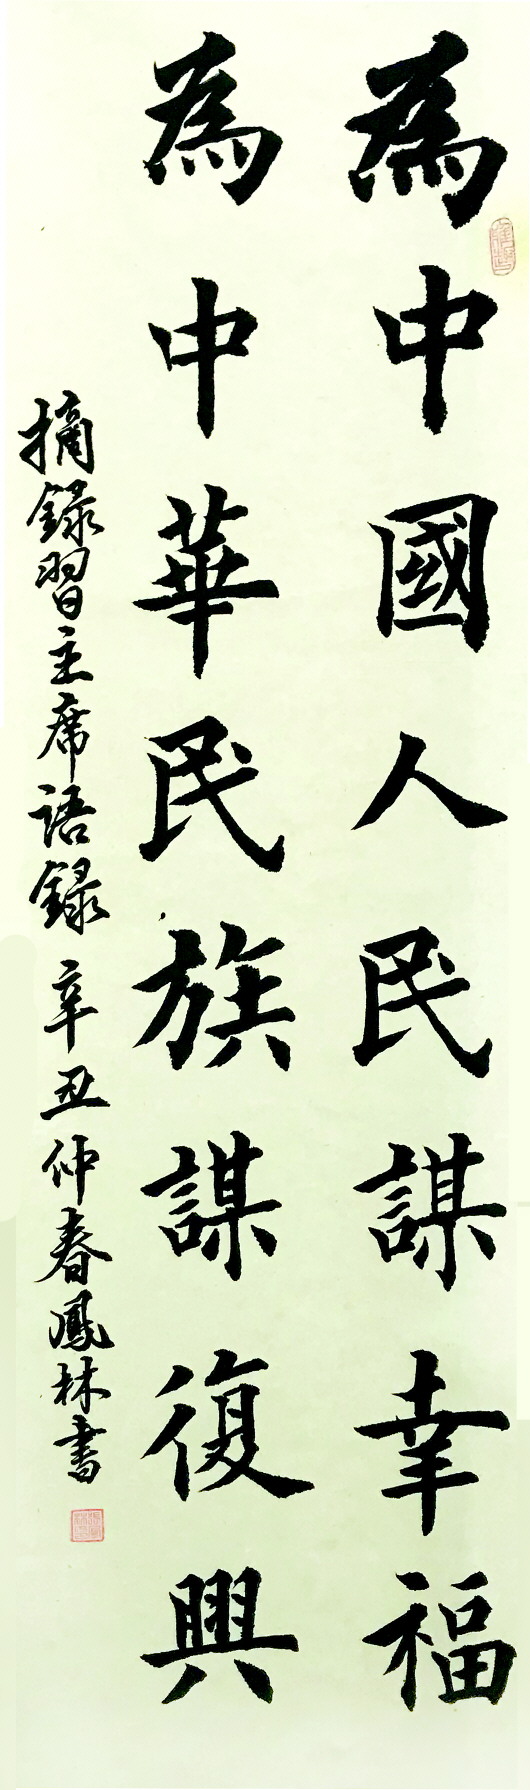 為中國人民謀幸福
為中華民族謀復興
摘録習主席語録 辛丑仲春鳳林書